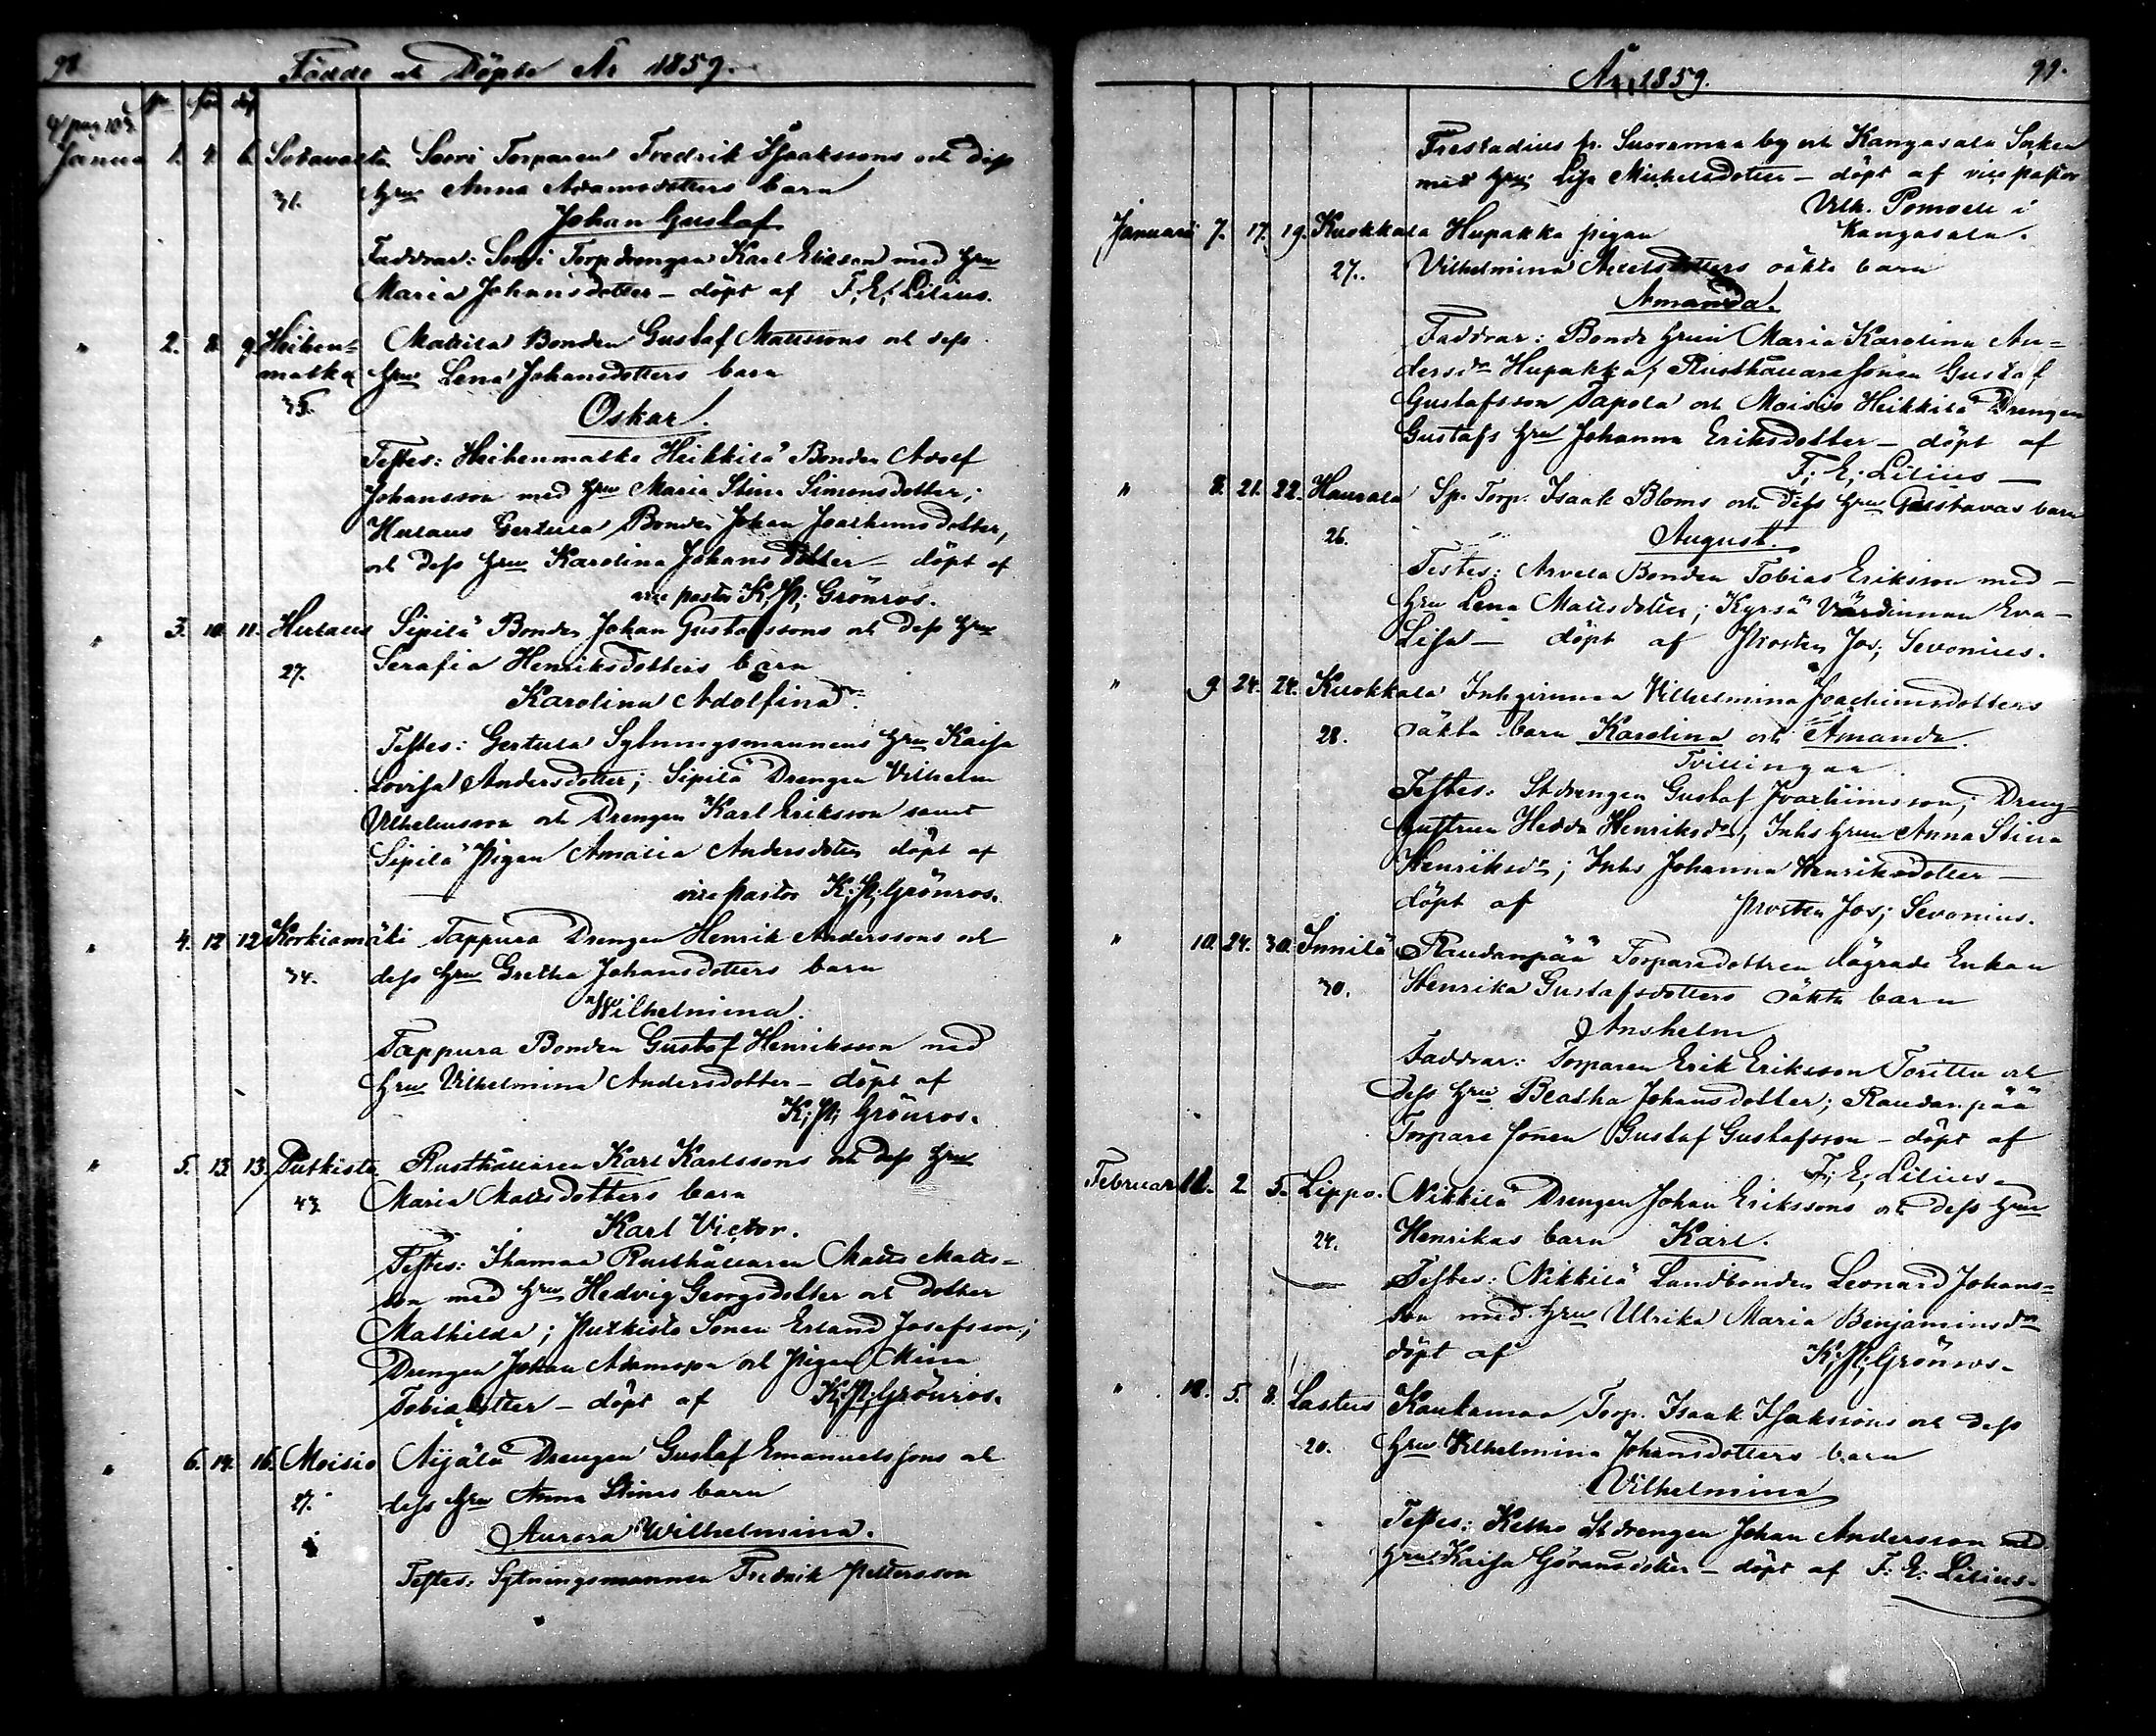 98
Födde och Döpte År 1859.
N:o föd döp
Janua 1. 4. 6. Sotavalta Sorri Torparen Fredrik Isaakssons och dess
31. Hru Anna Adamsdotters barn
Johan Gustaf
Faddrar: Sorri Torpdrengen Karl Erikson med Hru
Maria Johansdotter – döpt af F; E; Lilius.
" 2. 8. 9. Heiken= Mattila Bonden Gustaf Mattssons och dess
matka Hru Lena Johansdotters barn
35. Oskar.
Testes: Heikenmatka Heikkilä Bonden Adolf
Johansson med Hru Maria Stina Simonsdotter;
Hulaus Gertula Bonden Johan Joachimsdotter,
och dess Hru Karolina Johansdotter – döpt af
vice pastor K; H; Grönros.
" 3. 10. 11. Hulaus Sipilä Bonden Johan Gustafssons och dess Hru
27. Serafia Henriksdotters barn
Karolina Adolfina.
Testes: Gertula Sytningsmannens Hru Kaisa
Lovisa Andersdotter; Sipilä Drengen Vilhelm
Vilhelmsson och Drengen Karl Eriksson samt
Sipilä Pigan Amalia Andersdotter döpt af
vice pastor K; H; Grönros.
" 4. 12 12 Korkiamäki Tappura Drengen Henrik Anderssons och
34. dess Hru Gretha Johansdotters barn
Wilhelmina.
Tappura Bonden Gustaf Henriksson med
Hru Vilhelmina Andersdotter – döpt af
K; H; Grönros.
" 5. 13 13. Putkisto Rusthållaren Karl Karlssons och dess Hru
43 Maria Mattsdotters barn
Karl Victor.
Testes: Ihamaa Rusthållaren Matts Matts=
son med Hru Hedvig Georgsdotter och dotter
Mathilda; Putkisto Sonen Erland Josefsson;
Drengen Johan Adamsson och Pigan Mina
Tobiadotter – döpt af K; H; Grönros.
" 6. 14. 16. Moisio Äijälä Drengen Gustaf Emanuelssons och
27. dess Hru Anna Stinas barn
Aurora Wilhelmina.
Testes: Sytningsmannen Fredrik Pettersson
År 1859. 99.
Frestadius fr. Suoramaa by och Kangasala Socken
med Hru Lisa Michelsdotter – döpt af vice pastor
Vilh. Pomoell i
Kangasala.
Januari 7. 17. 19. Kuokkala Hupakka pigan
27. Vilhelmina Axelsdotters oäkta barn
Amanda.
Faddrar: Bonde Hrun Maria Karolina An=
dersdr Hupakka; Rusthållare sonen Gustaf
Gustafsson Tapola och Moisio Heikkilä Drengen
Gustafs Hru Johanna Eriksdotter – döpt af
F; E; Lilius –
" 8. 21. 22. Haurala Sp. Torp. Isaak Bloms och dess Hru Gustavas barn
26. August.
Testes: Arvela Bonden Tobias Eriksson med –
Hru Lena Mattsdotter; Kyrsä Värdinnan Eva –
Lisa – döpt af Prosten Jos; Sevonius.
" 9. 24. 24. Kuokkala Inhysinnan Vilhelmina Joachimsdotters
28. oäkta barn Karolina och Amanda.
Tvillingar.
Testes: Stdrengen Gustaf Joachimsson; Dreng=
hustrun Hedda Henriksdr; Inhs Hrun Anna Stina
Henriksdr; Inhs Johanna Henriksdotter –
döpt af Prosten Jos; Sevonius.
" 10. 24. 30. Innilä Raudanpää Torparedottren lägrade Enkan
30. Henrika Gustafsdotters oäkta barn
Anshelm
Faddrar: Torparen Erik Eriksson Toritta och
dess Hru Beatha Johansdotter; Raudanpää
Torpare sonen Gustaf Gustafsson – döpt af
F; E; Lilius.
Februar 11. 2 5. Lippo. Nikkilä Drengen Johan Erikssons och dess Hru
24. Henrikas barn Karl.
Testes: Nikkilä Landbonden Leonard Johans=
son med Hru Ulrika Maria Benjaminsdr
döpt af K; H; Grönros.
" 12. 5. 8. Lastus Kaukamaa Torp. Isaak Isakssons och dess
20. Hru Vilhelmina Johansdotters barn
Vilhelmina
Testes: Ketho Stdrengen Johan Andersson med
Hru Kaisa Göransdotter – döpt af F: E: Lilius.